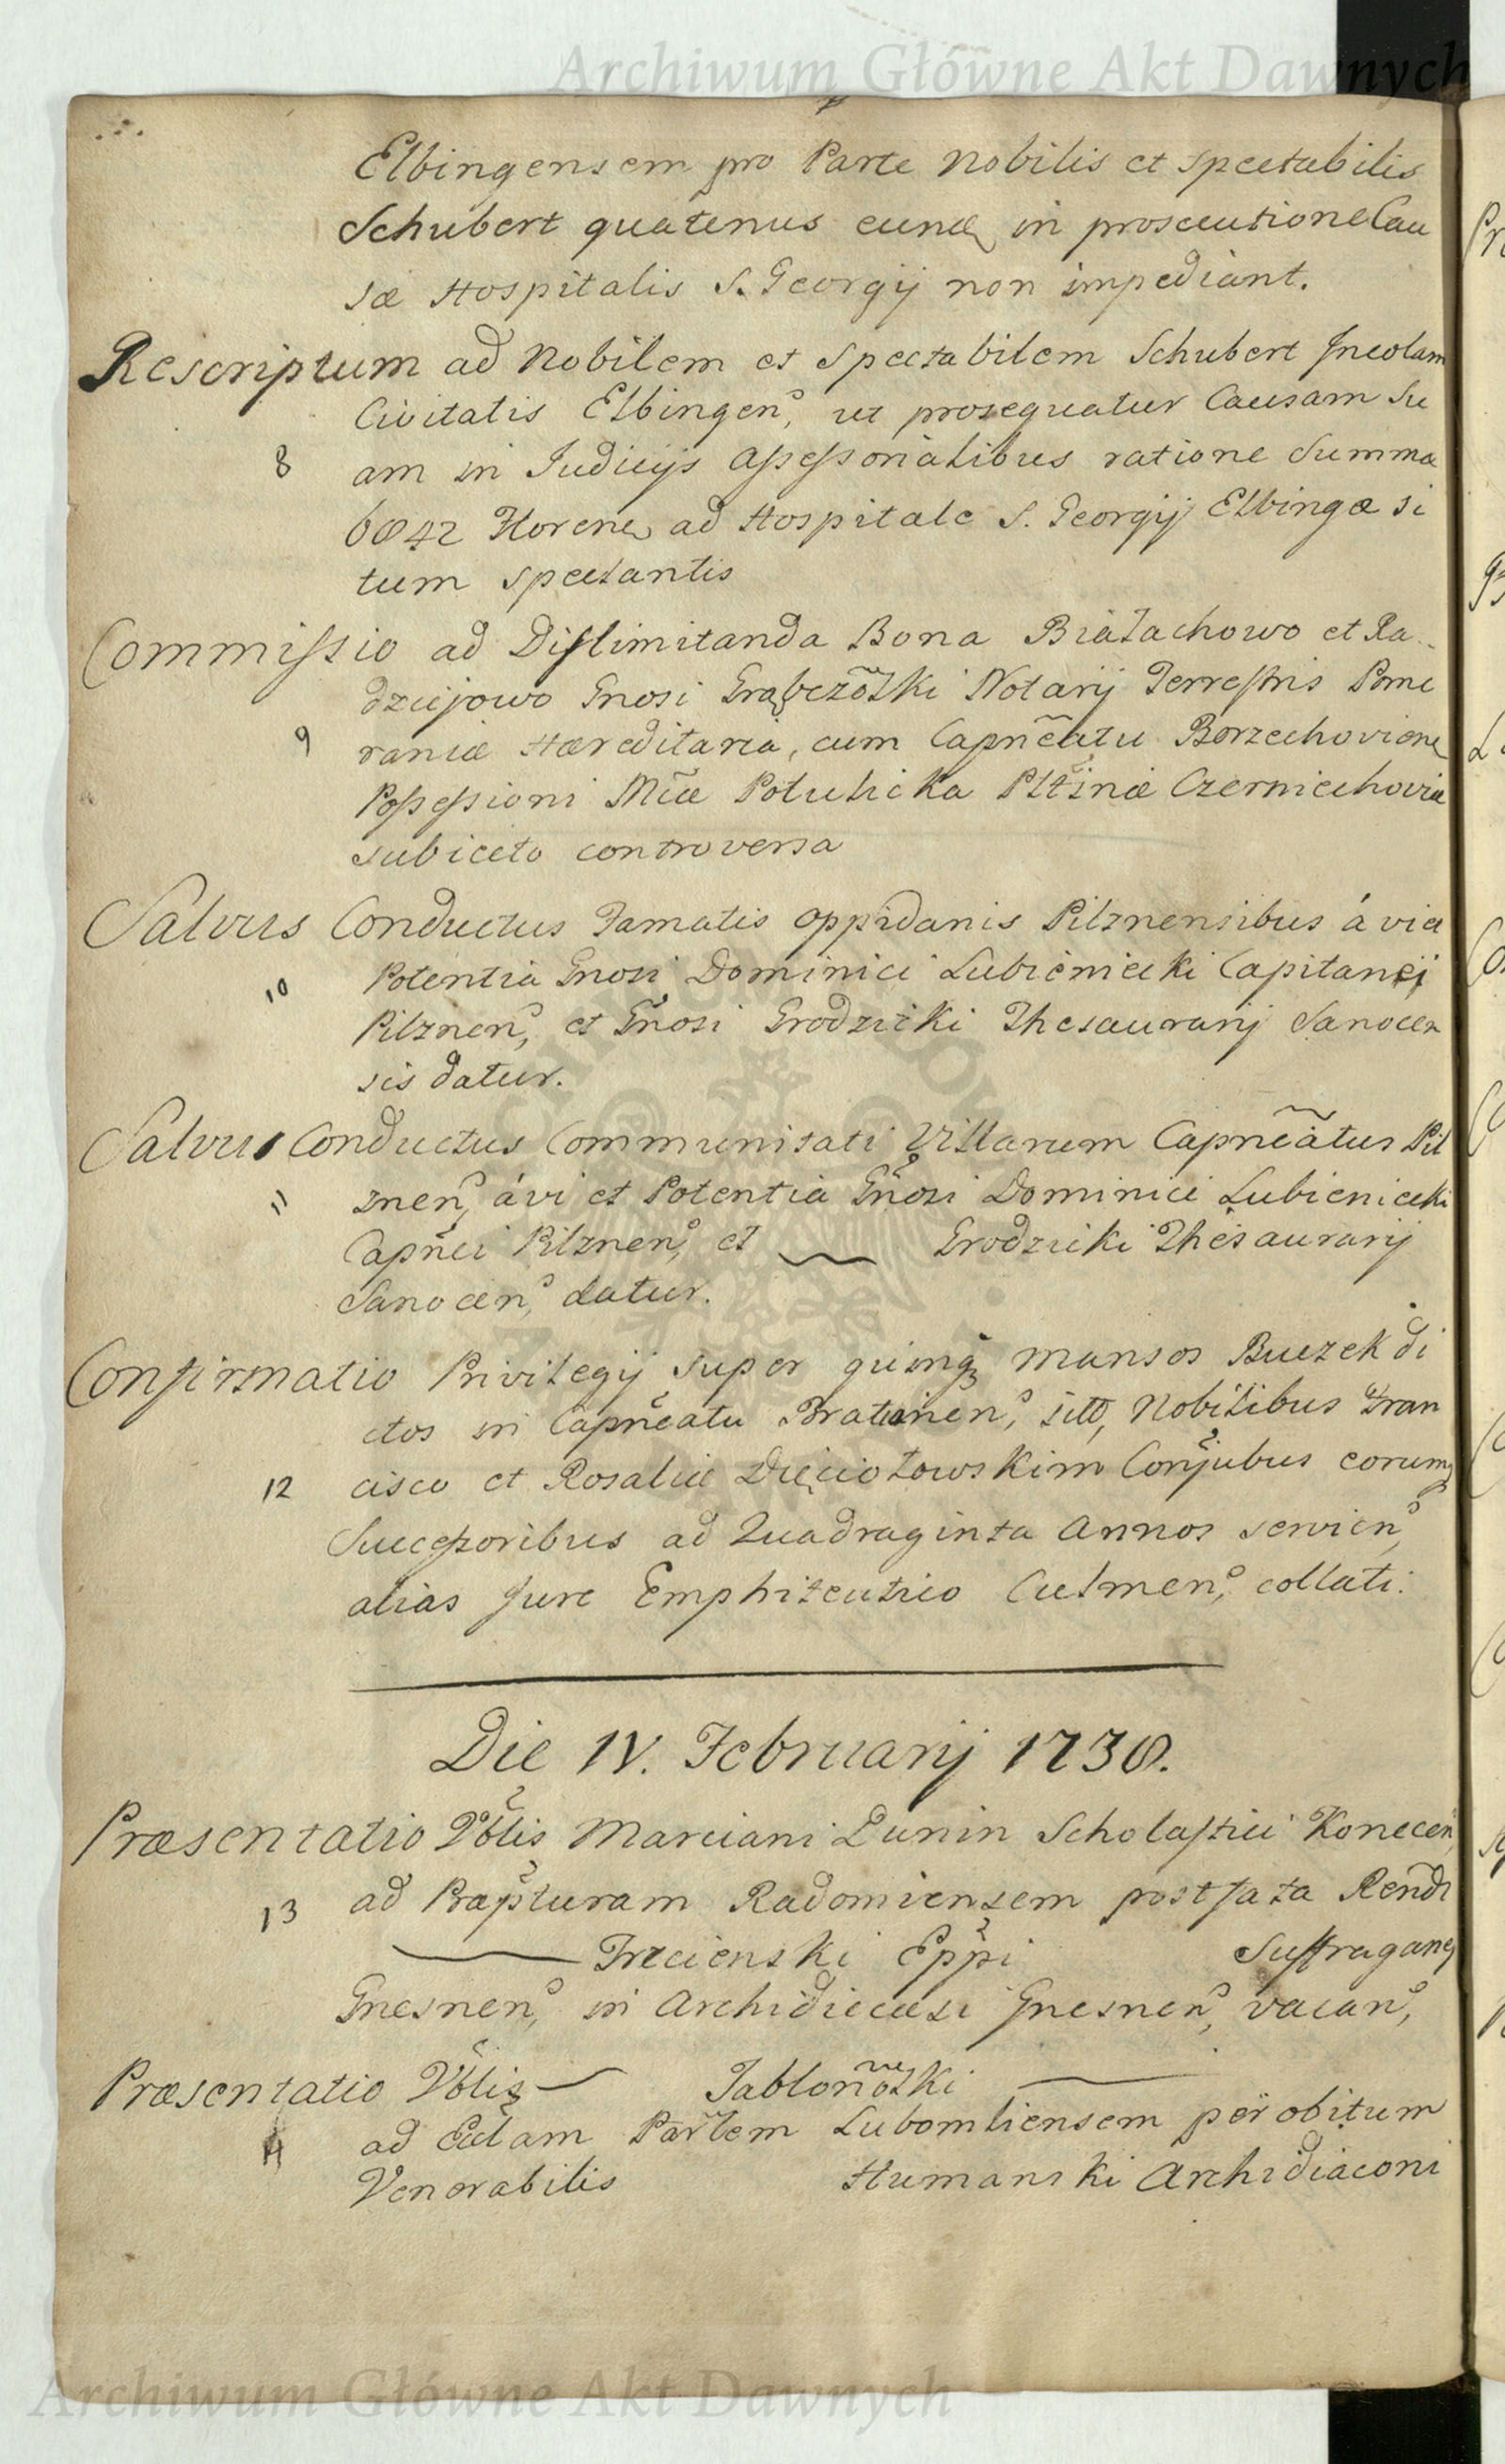 Archiwum Główne Akt Dawnych
Elbingensem pro Parte Nobilis et Spectabilis
Schubert quatenus eund in prosecutione Cau
sæ Hospitalis S. Georgij non impediant.
Rescriptum ad Nobilem et Spectabilem Schubert Incolam
Civitatis Elbingen, ut prosequatur Causam Su
8 am in Iudicijs Assessorialibus ratione Summæ
6042 Floren ad Hospitale S. Georgij Elbingæ si
tum spectantis
Commissio ad Dislimitanda Bona Białachowo et Ra
dziejowo Gnosi Grąbczew̃ski Notarij Terrestris Pome
9 raniæ Hæreditaria, cum Capnẽatu Borzechovien
Possessioni Mcæ Potulicka Pltinæ Czerniechoviæ
subiecto controversa
Salvus Conductus Famatis Oppidanis Pilznensibus á vi et
10 Potentia Gnosi Dominici Lubieniecki Capitanei
Pilznen, et Gnosi Grodzicki Thesaurarij Sanocen
sis datur.
Salvus Conductus Communitati Villarum Capnẽatus Pil
11 znen, á vi et Potentia Gnosi Dominici Lubieniecki
Capñei Pilznen, et Grodzicki Thesaurarij
Sanocen, datur.
Confirmatio Privilegij super quinq mansos Buczek di
ctos in Capnẽatu Bratianen, sitto, Nobilibus Fran
12 cisco et Rosaliæ Dzięciołowskim Conjubus eorumq
Successoribus ad Quadraginta Annos servien,
alias Jure Emphiteutico Culmen, collati.
Die IV. Februarij 1730.
Præsentatio Vblis Marciani Dunin Scholastici Konecen
13 ad Præpturam Radomiensem post fata Rendi
Trecienski Eppi Suffraganej
Gnesnen, in Archidiecæsi Gnesnen, vacan,
Præsentatio Vblis Jabłonow̃ski
14 ad Eccłam Parlem Lubomliensem per obitum
Venerabilis Humanski Archidiaconi
Archiwum Główne Akt Dawnych